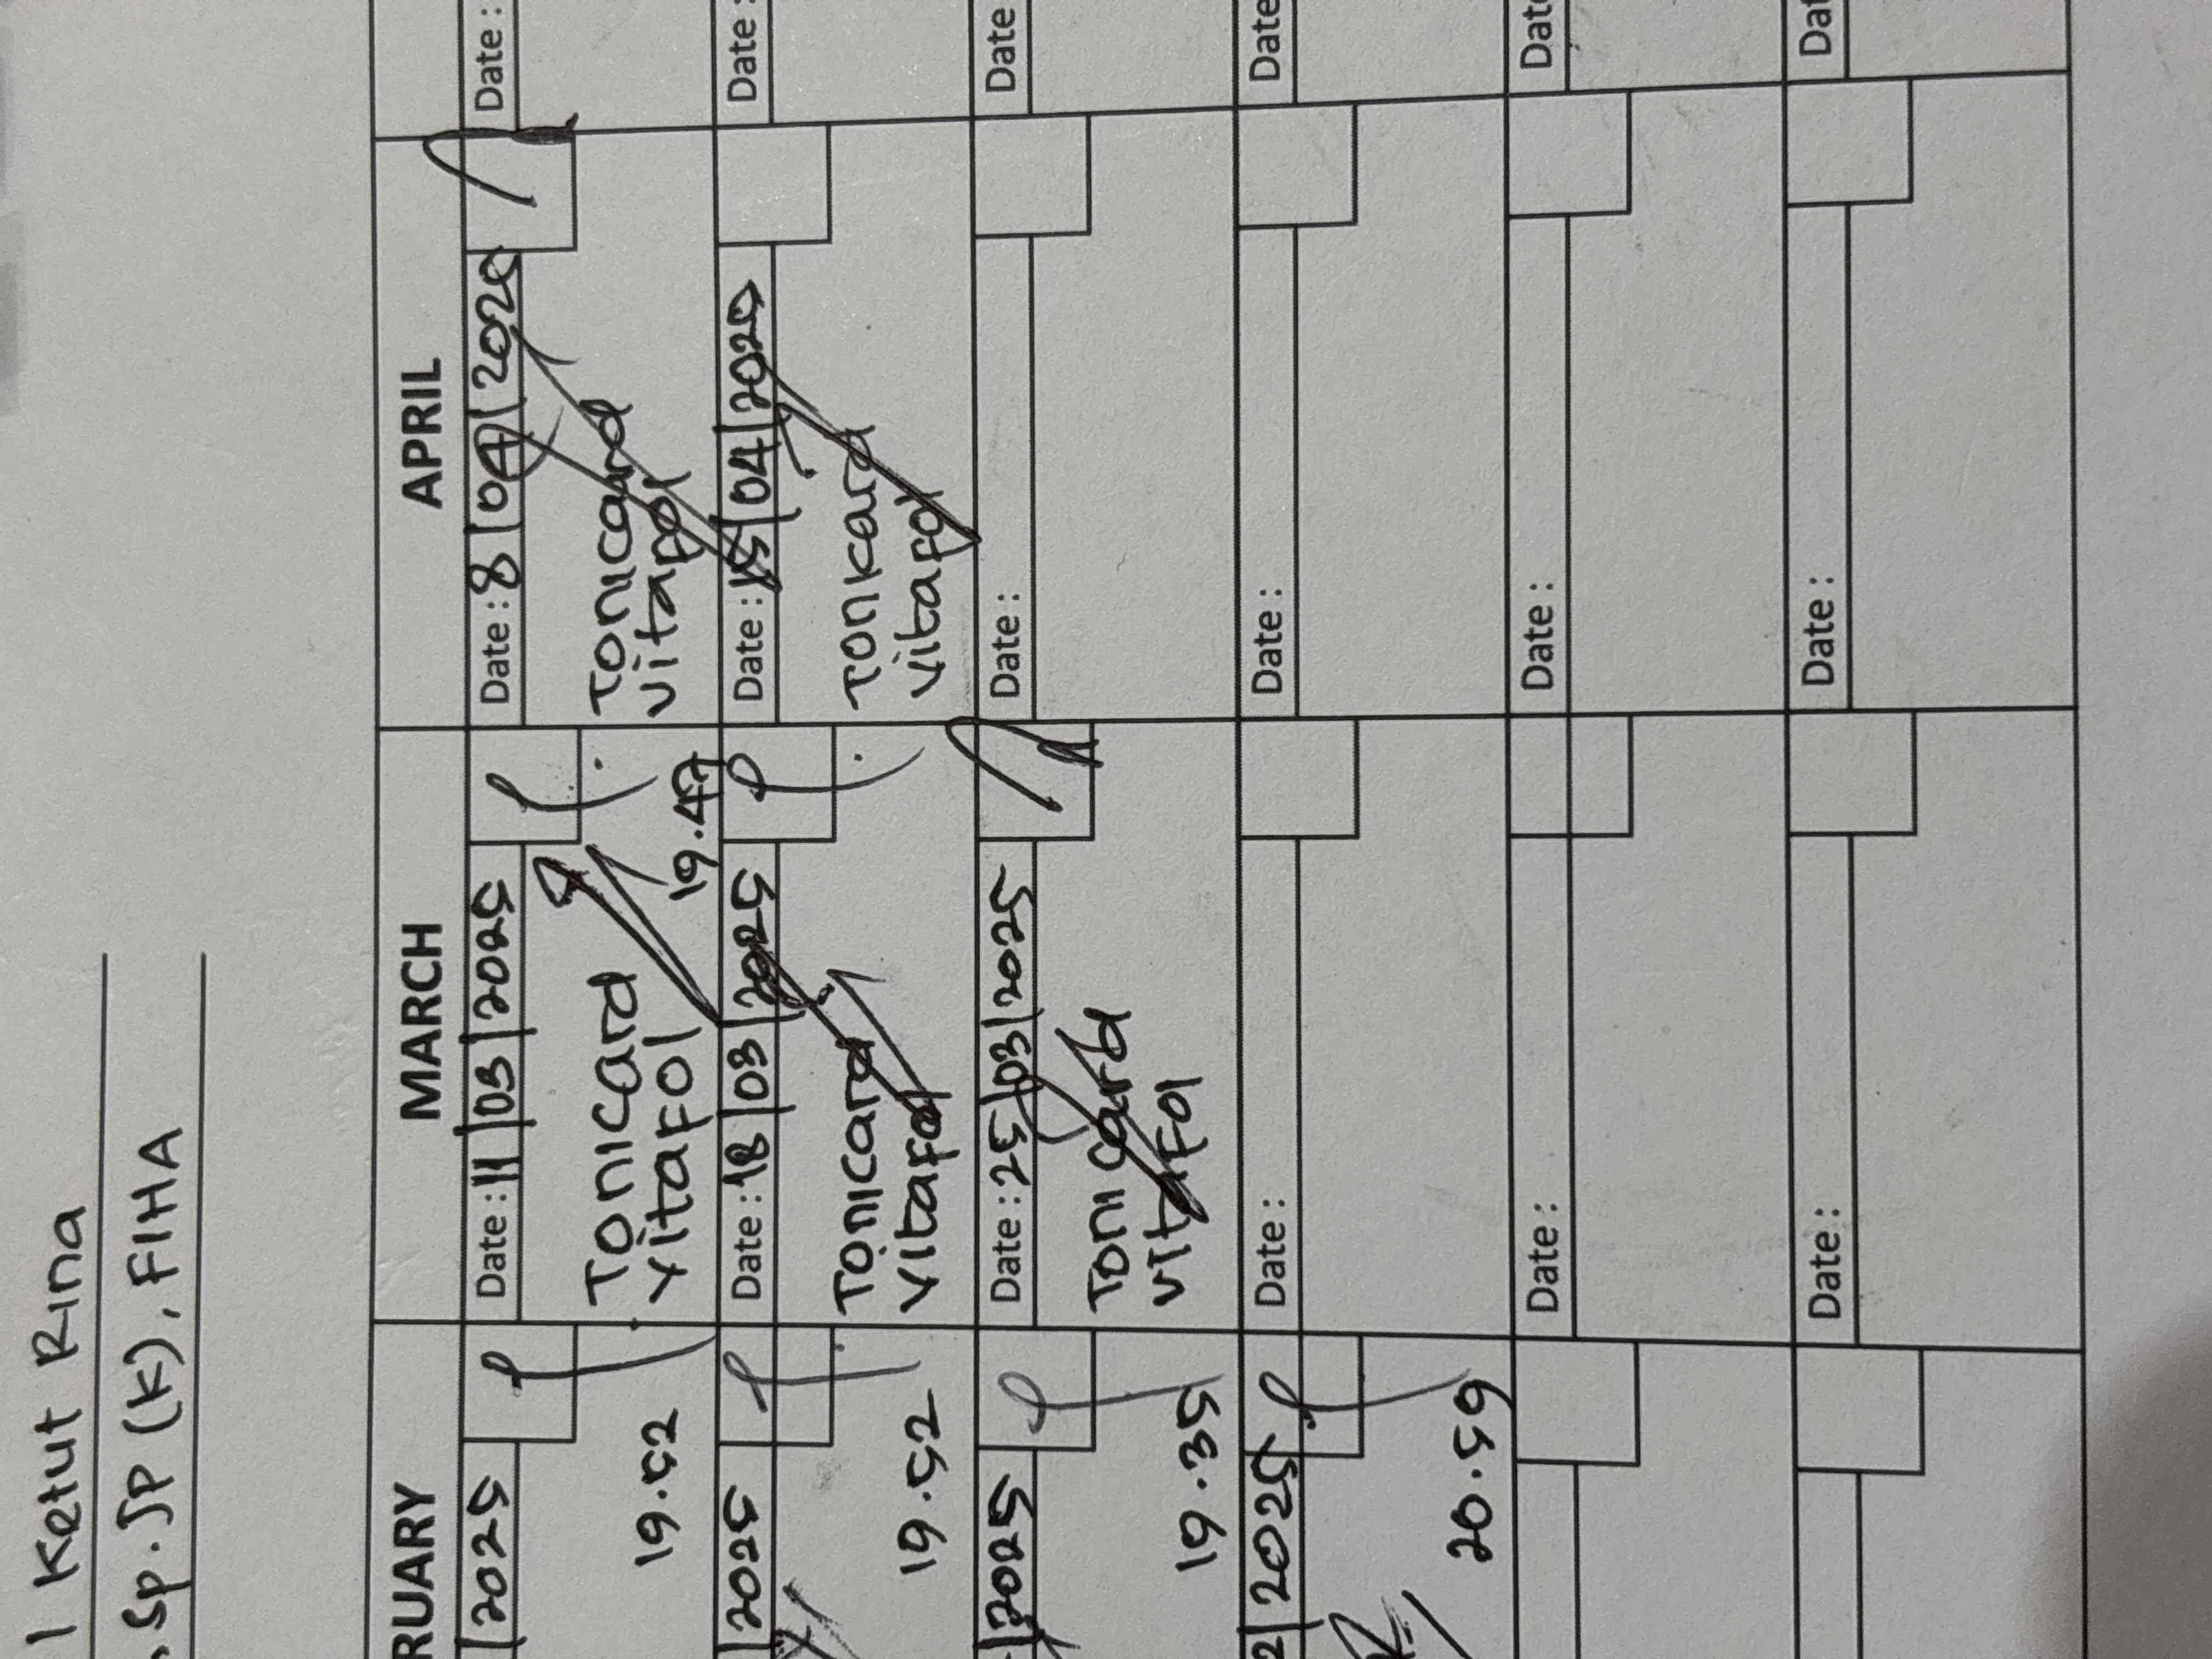 I Ketut Rina
, Sp. JP (K), FIHA
RUARY
MARCH
APRIL
2025
Date : 11 / 03 / 2025
Date : 8 / 04 / 2025
Date :
19.52
Tonicard
Vitafol
19.47
Tonicard
Vitafol
2025
Date : 18 / 03 / 2025
Date : 15 / 04 / 2025
Date :
19.52
Tonicard
Vitafol
Tonikard
Vitafol
2025
Date : 25 / 03 / 2025
Date :
Date
19.35
Toni card
Vitafol
2 / 2025
Date :
Date :
Date
20.59
Date :
Date :
Dat
Date :
Date :
Dat